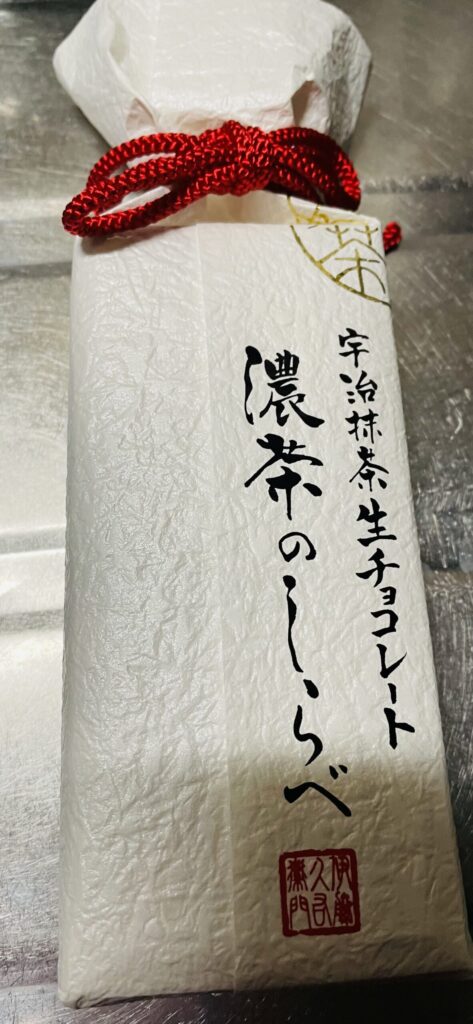 茶
宇治抹茶生チョコレート
濃茶のしらべ
伊藤久右衛門